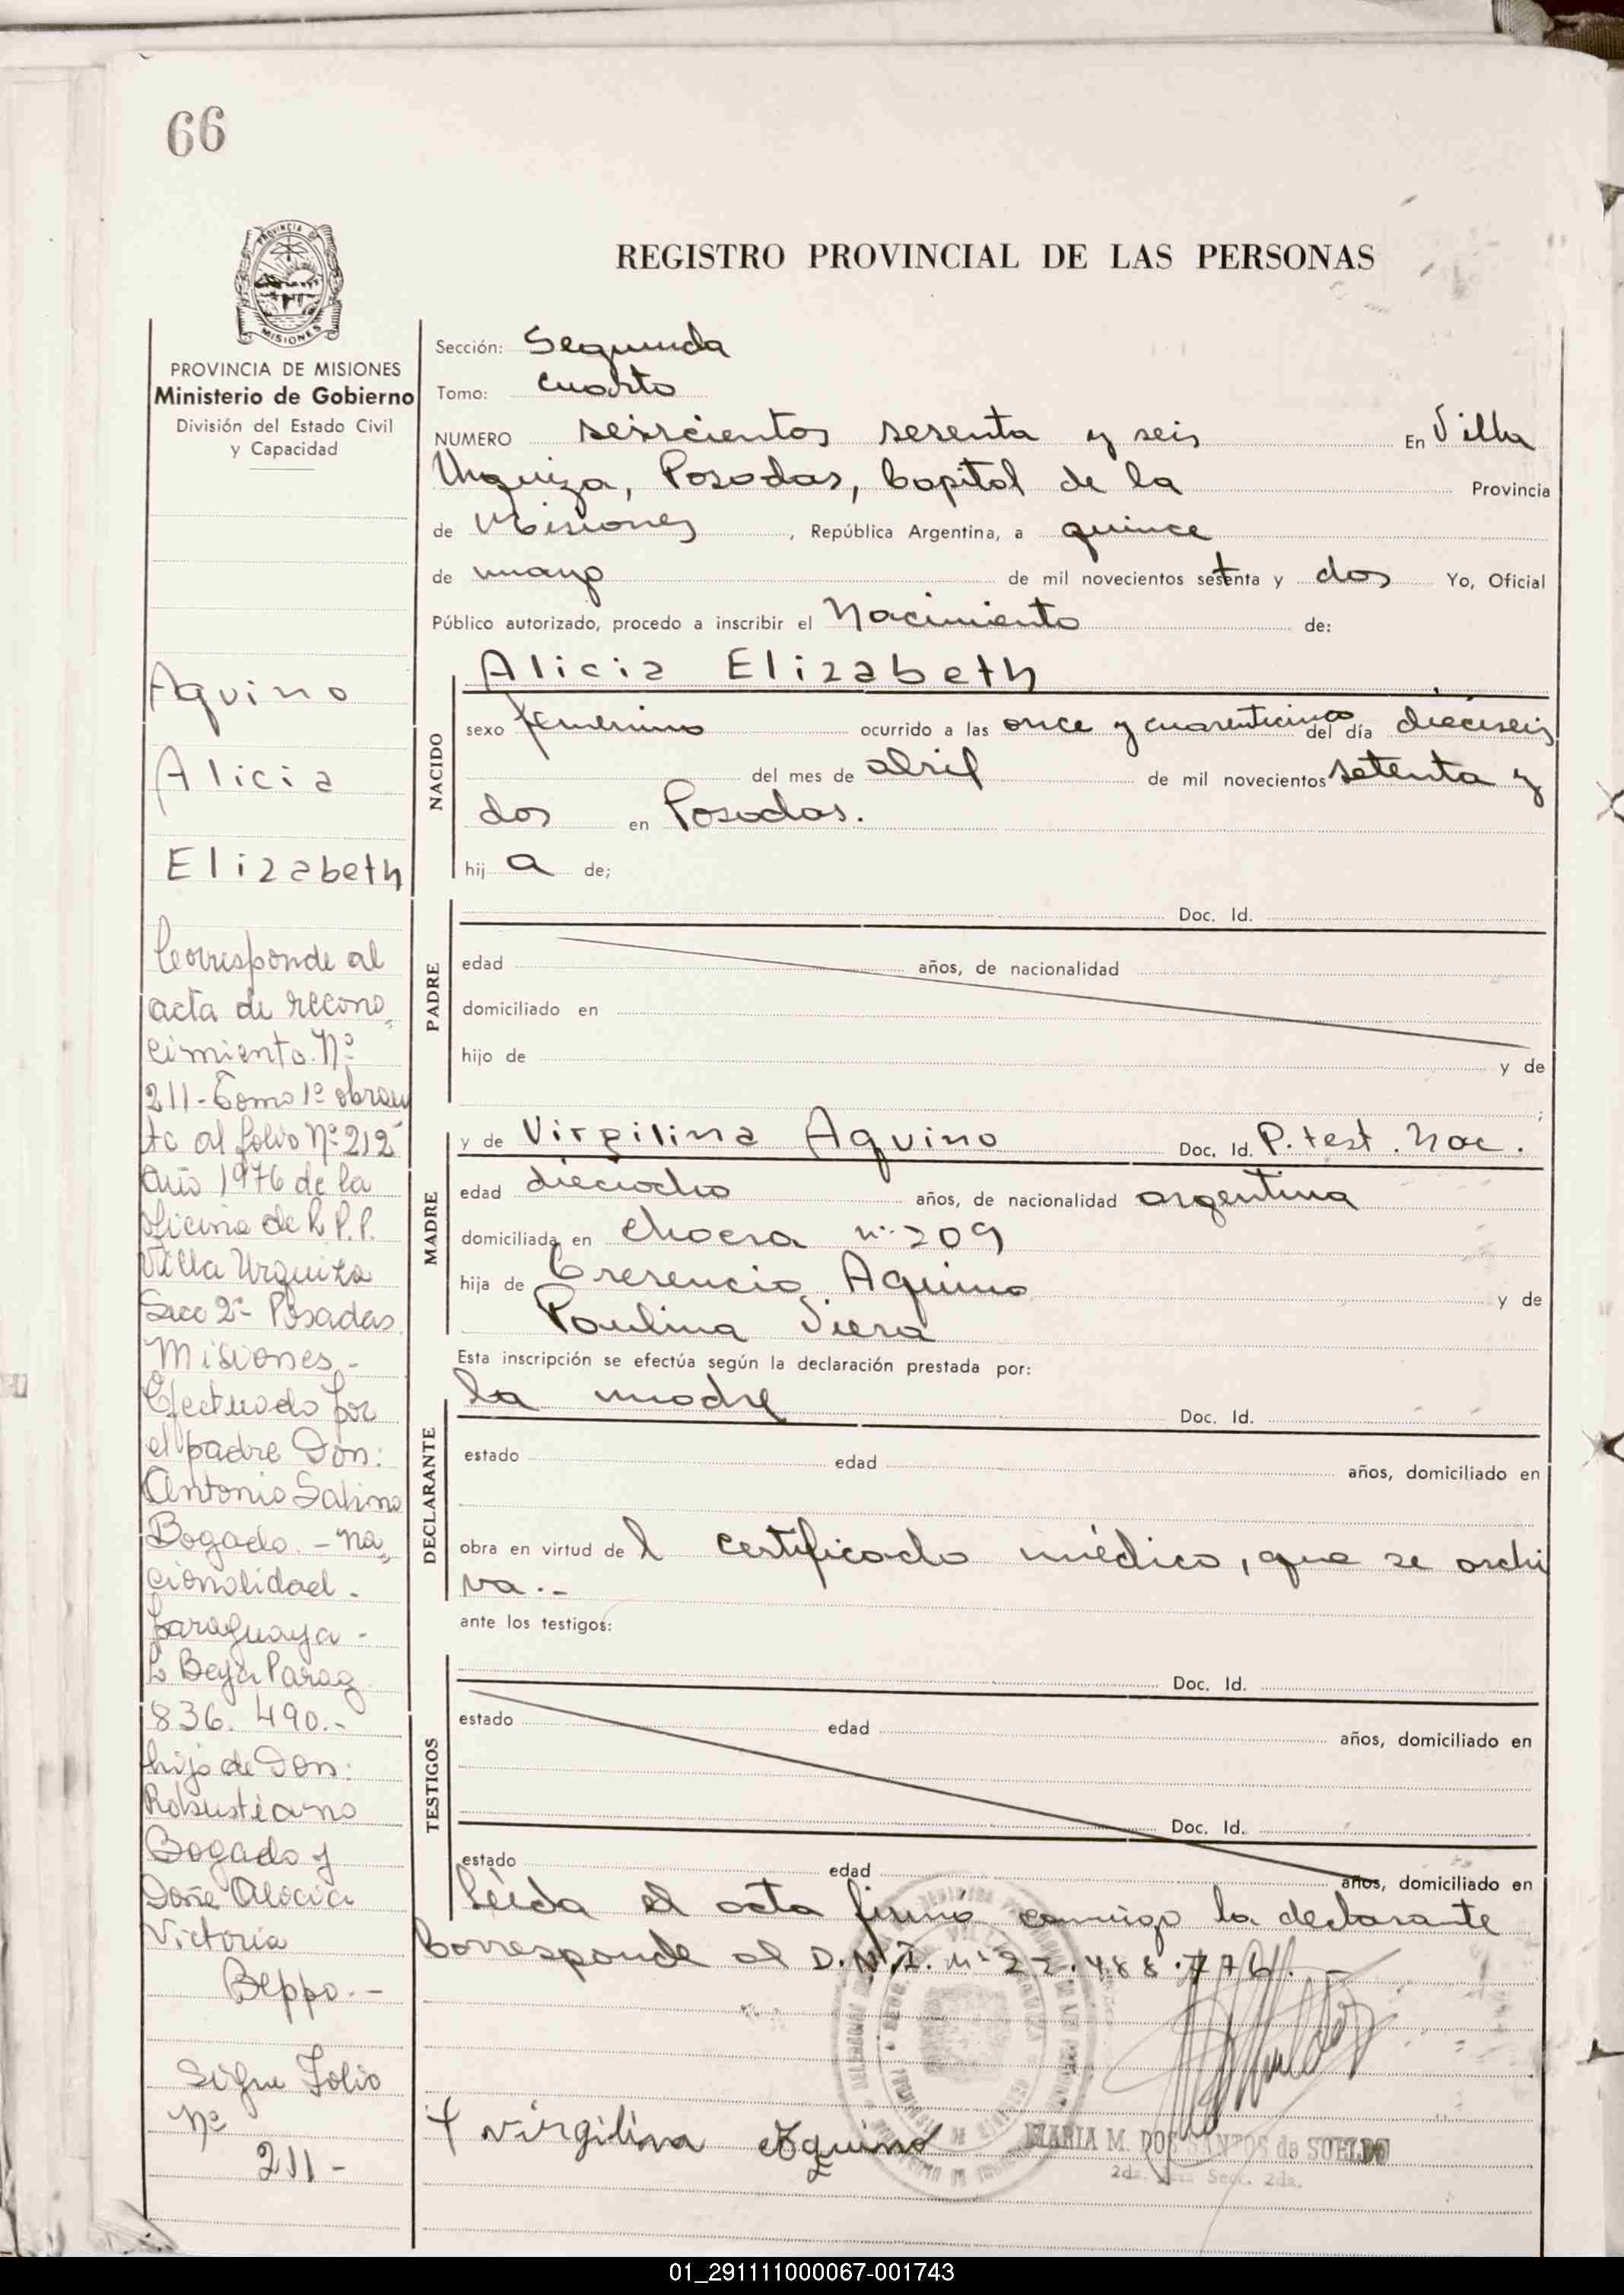 66
REGISTRO PROVINCIAL DE LAS PERSONAS
PROVINCIA DE MISIONES
Ministerio de Gobierno
División del Estado Civil
y Capacidad
Aquino
Alicia
Elizabeth
Corresponde al
acta de recono
cimiento Nº
211 - Tomo 1º obran
te al folio Nº 212
Año 1976 de la
oficina de R.P.P.
Villa Urquiza
Secc 2ª - Posadas
Misiones -
Efectuado por
el padre Don:
Antonio Sabino
Bogado. - Na
cionalidad -
paraguaya -
Parag
836.490.-
hijo de Don:
Robustiano
Bogado y
Doña
Victoria
Beppo.-
Sigue Folio
Nº
211 -
Sección: Segunda
Tomo: cuarto
NUMERO seiscientos sesenta y seis En Villa
Urquiza, Posadas, Capital de la Provincia
de Misiones, República Argentina, a quince
de mayo de mil novecientos setenta y dos Yo, Oficial
Público autorizado, procedo a inscribir el Nacimiento de:
NACIDO
Alicia Elizabeth
sexo femenino ocurrido a las once y cuarenticinco del día dieciseis
del mes de abril de mil novecientos setenta y
dos en Posadas.
hij a de;
PADRE
Doc. Id.
edad años, de nacionalidad
domiciliado en
hijo de y de
;
MADRE
y de Virgilina Aquino Doc. Id. P. test. Nac.
edad dieciocho años, de nacionalidad argentina
domiciliada en chacra nº 209
hija de Cresencio Aquino y de
Paulina Viera
Esta inscripción se efectúa según la declaración prestada por:
DECLARANTE
la madre Doc. Id.
estado edad años, domiciliado en
obra en virtud de l certificado médico, que se archi
va.-
ante los testigos:
TESTIGOS
Doc. Id.
estado edad años, domiciliado en
Doc. Id.
estado edad años, domiciliado en
Leida el acta firma conmigo la declarante
Corresponde al D.N.I. nº 22.488.776. -
+ virgilina Aquino
MARIA M. DOS SANTOS de SUELDO
2da. Secc. 2da.
01_291111000067-001743